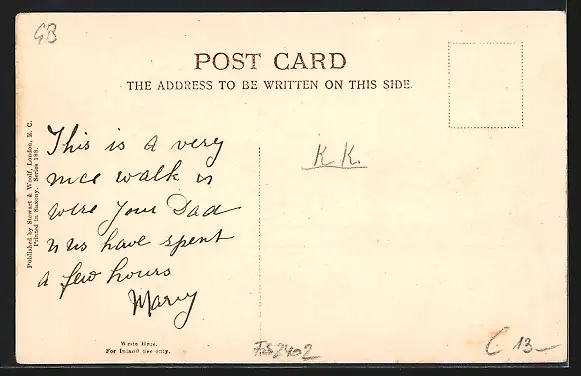 GB
POST CARD
THE ADDRESS TO BE WRITTEN ON THIS SIDE.
Published by Stewart & Woolf, London, E. C.
Printed in Saxony. Series 188.
This is a very
nice walk
were your Dad
n us have spent
a few hours
Mary
K.K.
Write Here.
For Inland use only.
C 13-